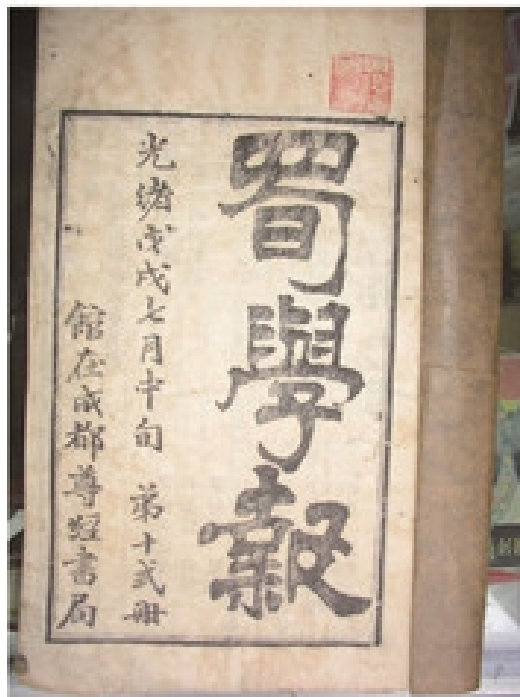 蜀學報
光緒戊戌七月中旬 第十弍冊
館在成都尊經書局